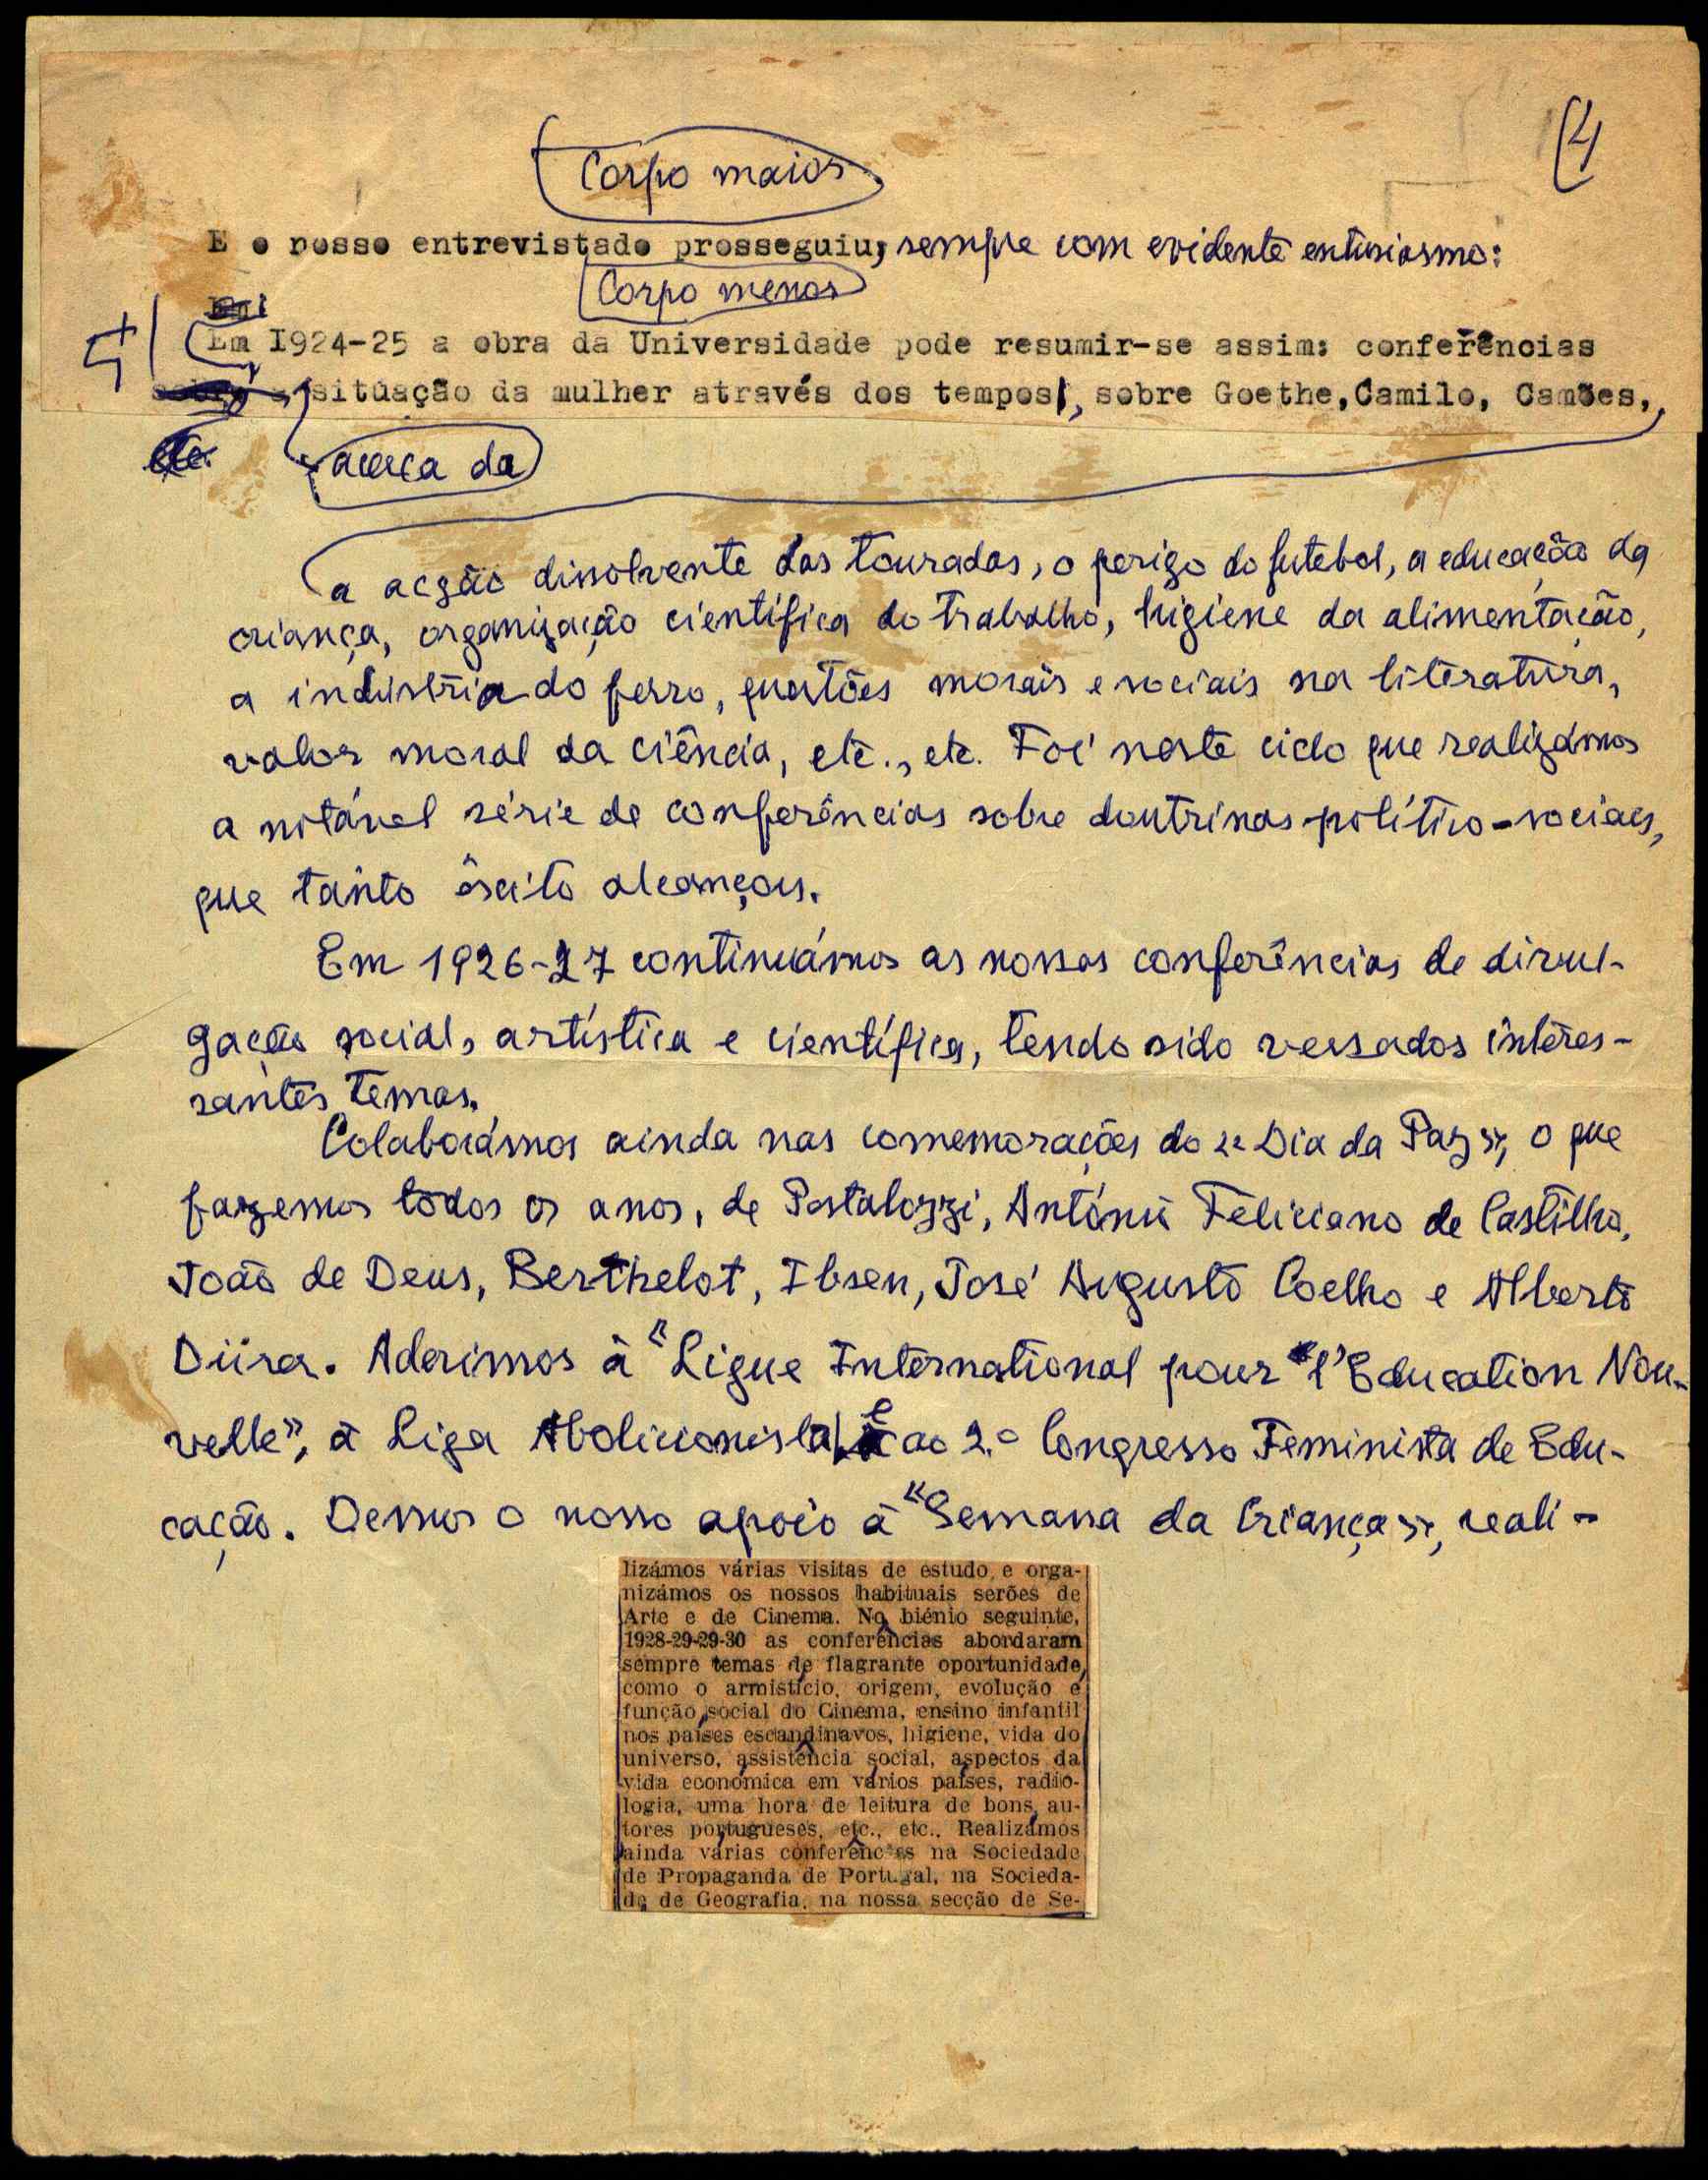 (4
Corpo maior
E o nosso entrevistado prosseguiu, sempre com evidente entusiasmo:
Corpo menor
Em 1924-25 a obra da Universidade pode resumir-se assim: conferências
situação da mulher através dos tempos, sobre Goethe, Camilo, Camões,
etc.
acerca da
a acção dissolvente das touradas, o perigo do futebol, a educação da
criança, organização científica do trabalho, higiene da alimentação,
a indústria do ferro, questões morais e sociais na literatura,
valor moral da ciência, etc., etc. Foi neste ciclo que realizámos
a notável série de conferências sobre doutrinas político-sociaes,
que tanto êxito alcançou.
Em 1926-27 continuámos as nossas conferências de divul-
gação social, artística e científica, tendo sido versados interes-
santes temas.
Colaborámos ainda nas comemorações do «Dia da Paz», o que
fazemos todos os anos, de Pestalozzi, António Feliciano de Castilho,
João de Deus, Berthelot, Ibsen, José Augusto Coelho e Alberto
Dürer. Aderimos à "Ligue International pour l'Education Nou-
velle", à Liga Abolicionista e ao 2.º Congresso Feminista de Edu-
cação. Demos o nosso apoio à "Semana da Criança», reali-
lizámos várias visitas de estudo e orga-
nizámos os nossos habituais serões de
Arte e de Cinema. No biénio seguinte,
1928-29-29-30 as conferências abordaram
sempre temas de flagrante oportunidade,
como o armistício, origem, evolução e
função social do Cinema, ensino infantil
nos países escandinavos, higiene, vida do
universo, assistência social, aspectos da
vida económica em vários países, radio-
logia, uma hora de leitura de bons au-
tores portugueses, etc., etc.. Realizámos
ainda várias conferências na Sociedade
de Propaganda de Portugal, na Socieda-
de de Geografia, na nossa secção de Se-